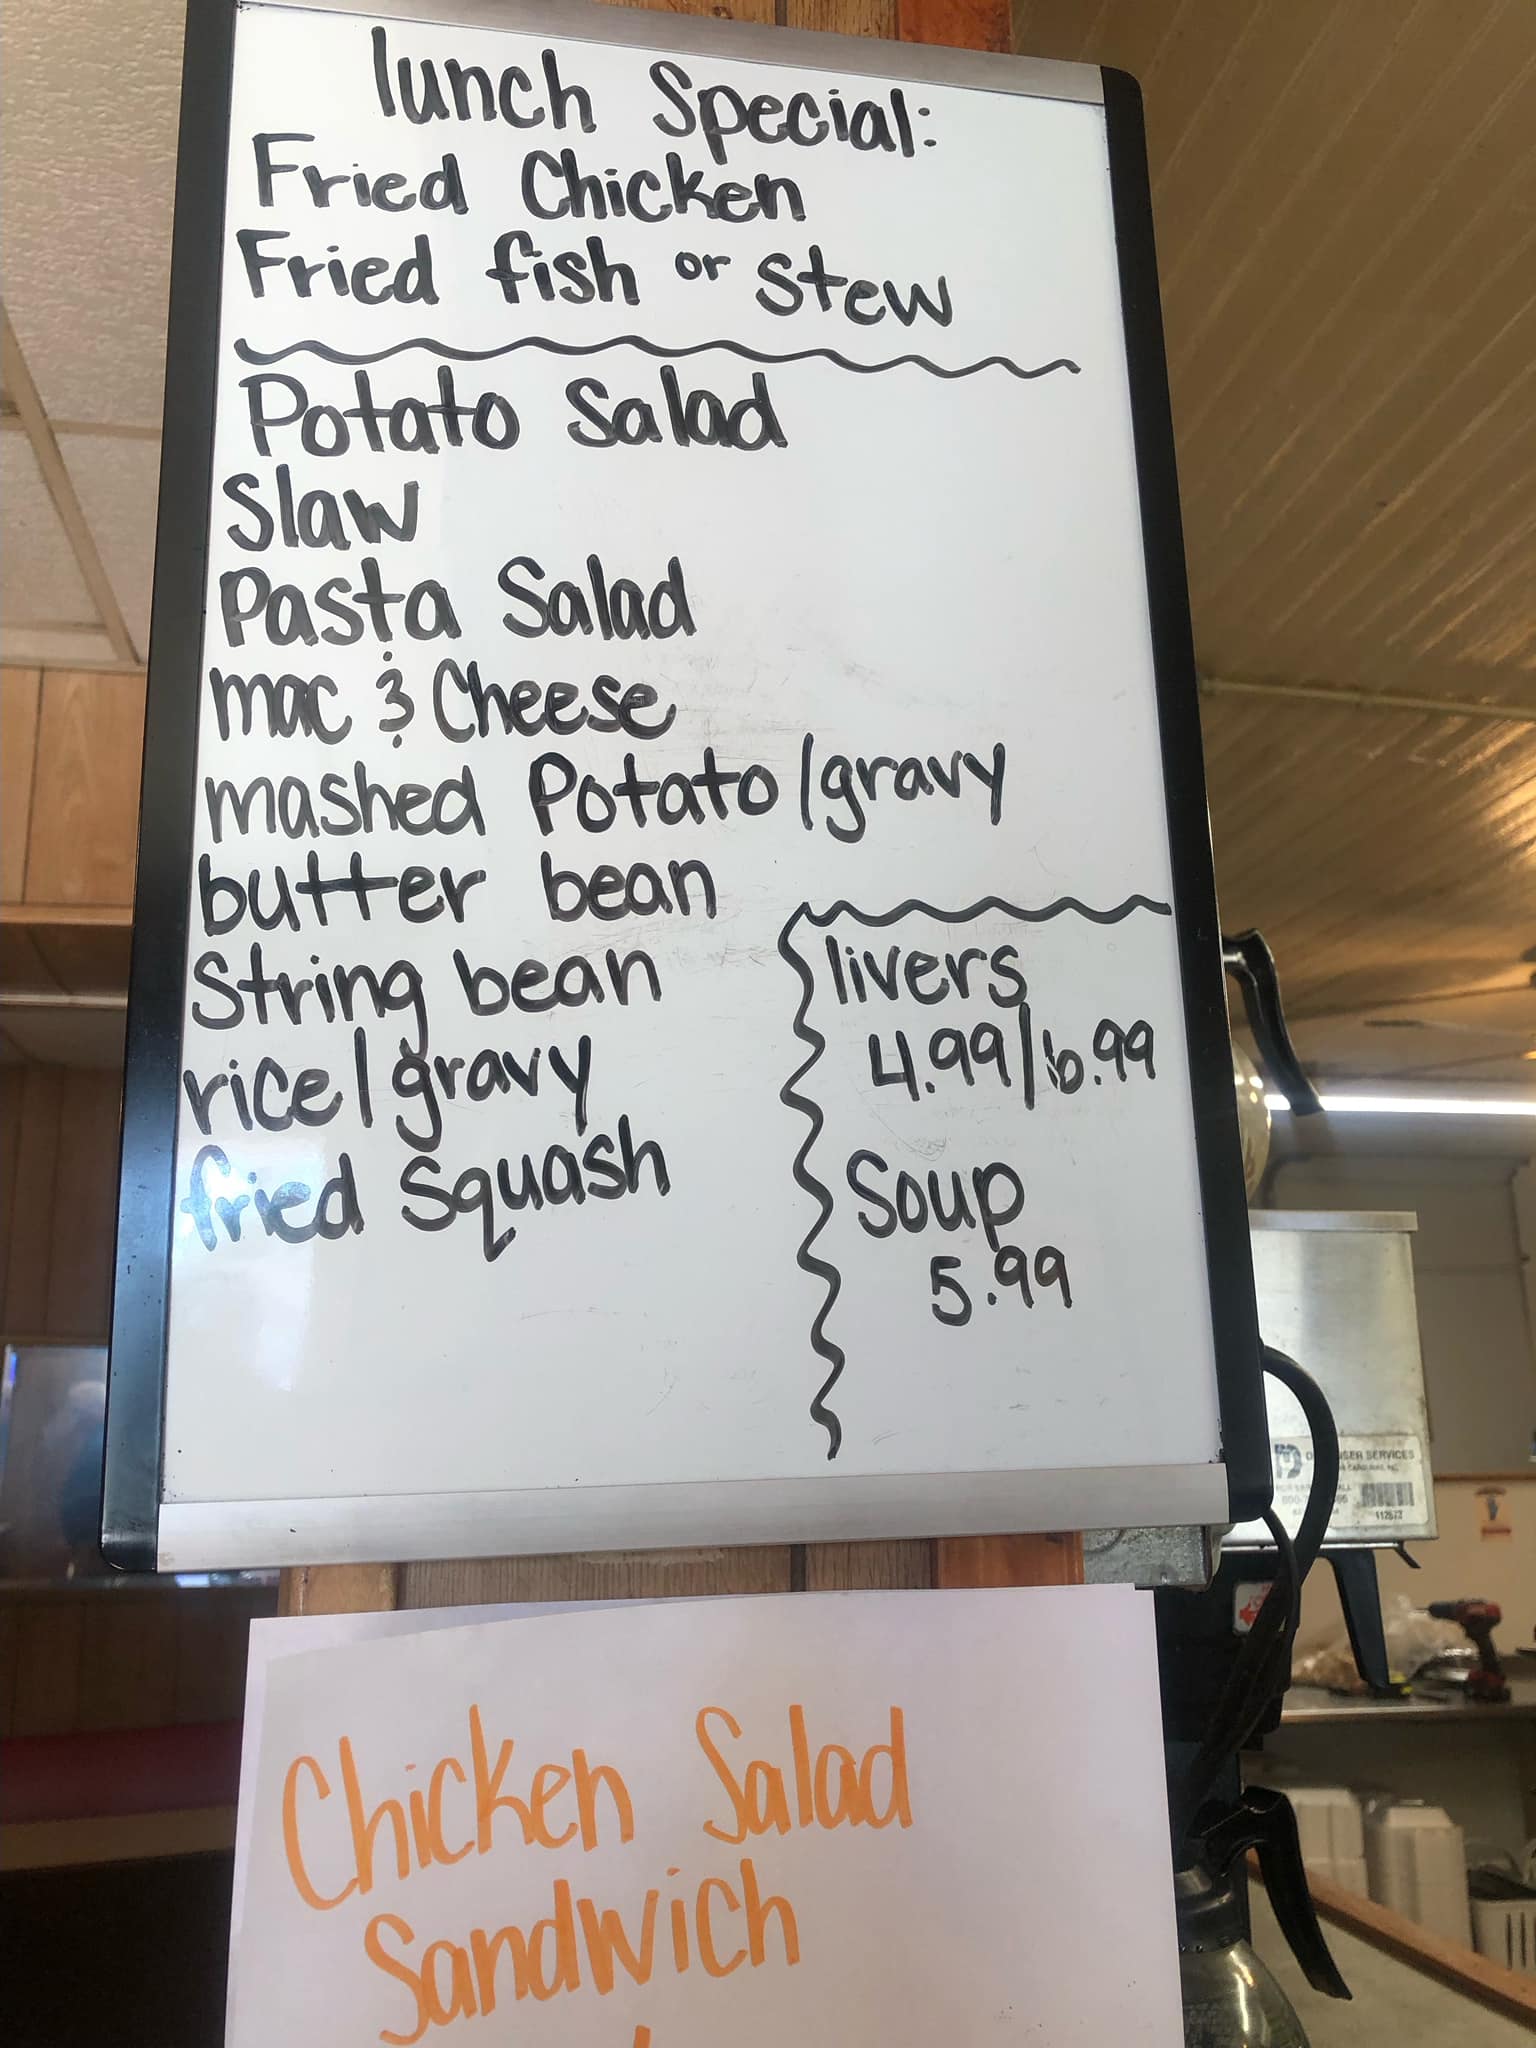 lunch Special:
Fried Chicken
Fried fish or stew
Potato Salad
Slaw
Pasta Salad
mac & Cheese
mashed Potato/gravy
butter bean
String bean
rice/gravy
fried Squash
livers
4.99/6.99
Soup
5.99
Chicken Salad
Sandwich
SER SERVICES
112672